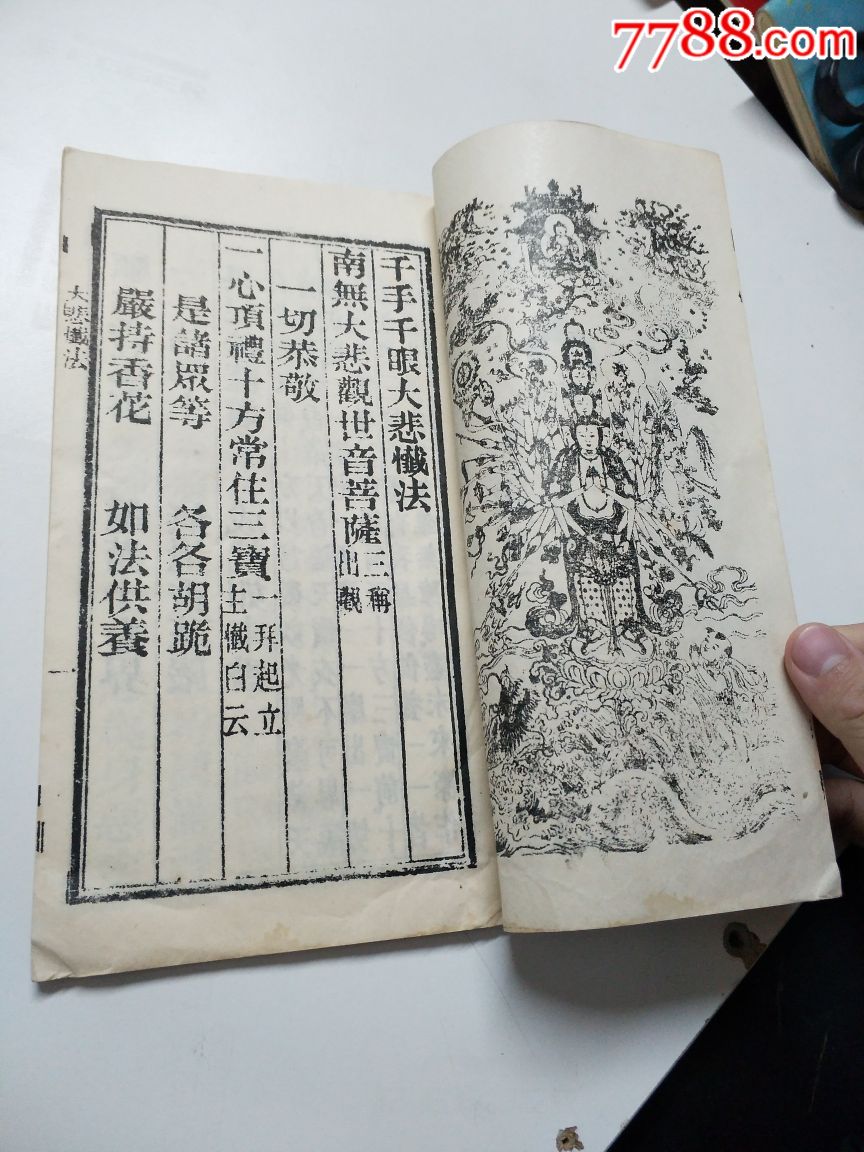 7788.com
千手千眼大悲懺法
南無大悲觀世音菩薩三稱出觀
一切恭敬
一心頂禮十方常住三寶一拜起立主懺白云
是諸眾等 各各胡跪
嚴持香花 如法供養
大悲懺法
一